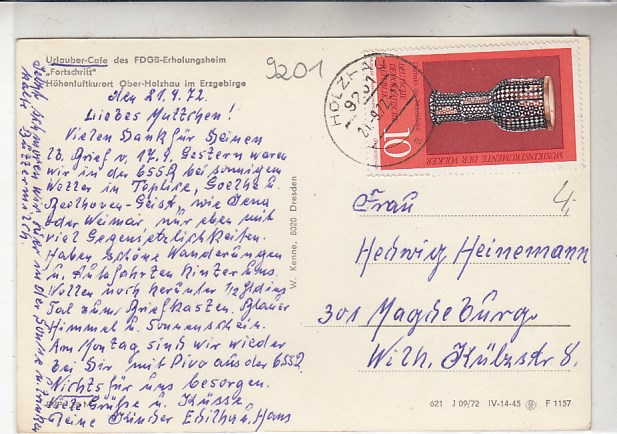 Urlauber-Cafe des FDGB-Erholungsheim
„Fortschritt"
Höhenluftkurort Ober-Holzhau im Erzgebirge
9201
den 21.9.72
Liebes Muttchen!
Vielen Dank für Deinen
lb. Brief v. 17.9. Gestern waren
wir in der ČSSR bei sonnigen
Wetter in Teplice, Goethe u.
Beethoven-Geist, wie Jena
oder Weimar nur eben mit
viel Gegensätzlichkeiten.
Haben schöne Wanderungen
u. Autofahrten hinter uns.
Wollen noch herunter ins
Tal zum Briefkasten. Blauer
Himmel u. Sonnenschein.
Am Montag sind wir wieder
bei Dir mit Pivo aus der ČSSR.
Nichts für uns besorgen.
Viele Grüße u. Küsse
Deine Kinder Edith u. Hans
wir hier in der Sonne u. trinken
W. Kenne, 8020 Dresden
HOLZHAU
9201
21.9.72
DEUTSCHE
DEMOKRATISCHE
REPUBLIK
10
MUSIKINSTRUMENTE DER VÖLKER
Frau
4,
Hedwig Heinemann
301 Magdeburg.
Wilh. Külzstr 8.
621 J 09/72 IV-14-45 F 1157